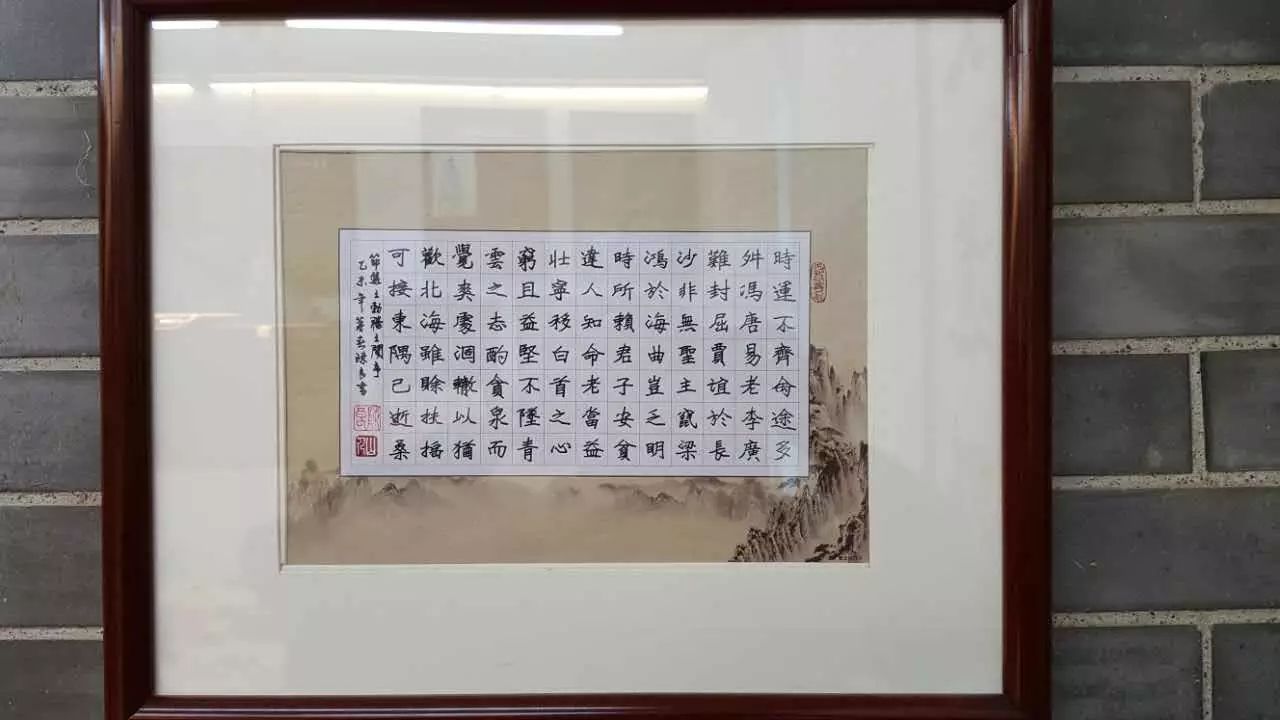 時運不齊命途多
舛馮唐易老李廣
難封屈賈誼於長
沙非無聖主竄梁
鴻於海曲豈乏明
時所賴君子安貧
達人知命老當益
壯寧移白首之心
窮且益堅不墜青
雲之志酌貪泉而
覺爽處涸轍以猶
歡北海雖賒扶搖
可接東隅已逝桑
節錄王勃滕王閣序
乙未年書